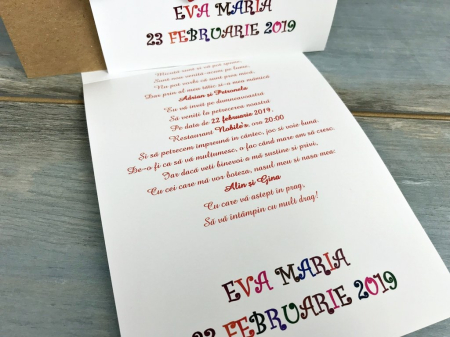 EVA MARIA
23 FEBRUARIE 2019
Adrian și Petronela
Eu vă invit pe dumneavoastră
Să veniți la petrecerea noastră
Pe data de 22 februarie 2019,
Restaurant Nobile's, ora 20:00
Și să petrecem împreună în cântec, joc și voie bună.
De-o fi ca să vă mulțumesc, o fac când mare am să cresc.
Iar dacă veți binevoi a mă susține și privi,
Cu cei care mă vor boteza, nasul meu si nasa mea:
Alin și Gina
Cu care vă aștept in prag,
Să vă întâmpin cu mult drag!
EVA MARIA
23 FEBRUARIE 2019